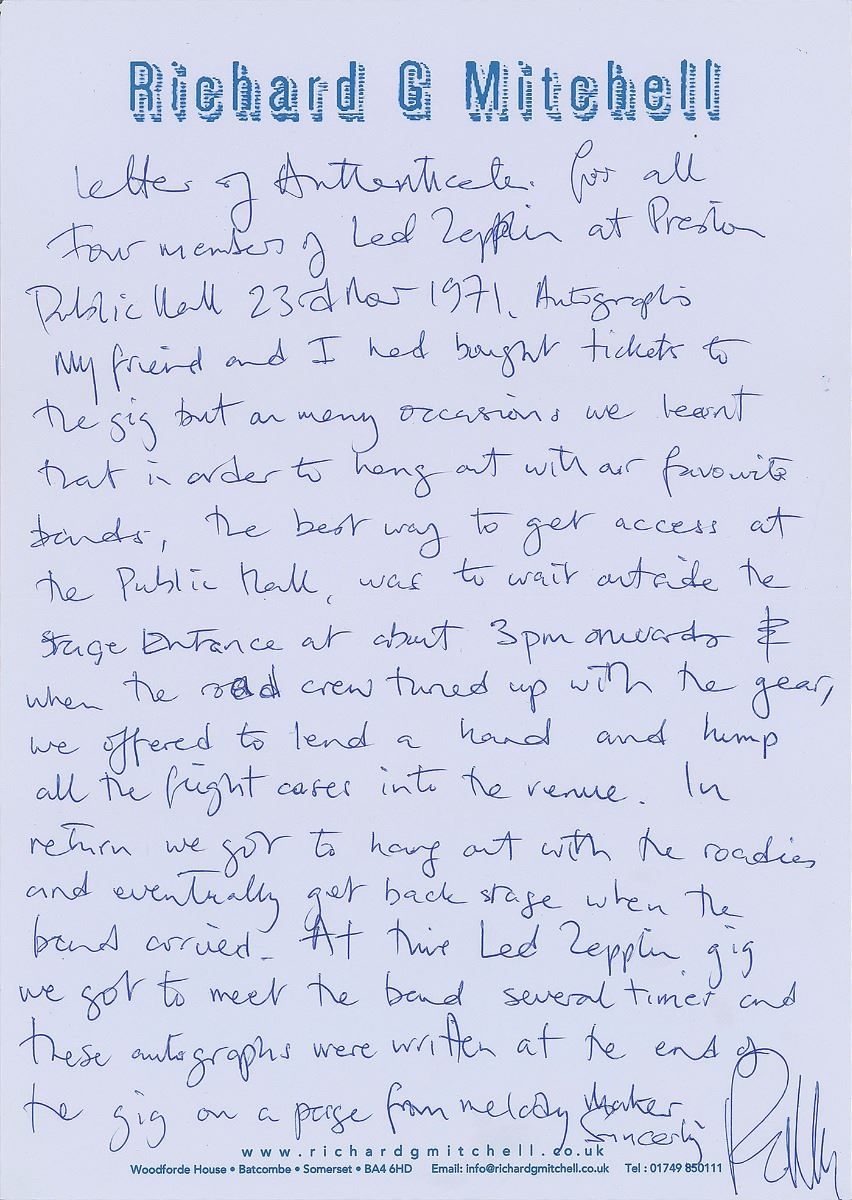 Richard G Mitchell
Letter of Authenticate. for all
Four members of Led Zepplin at Preston
Public Hall 23rd Nov 1971. Autographs
My friend and I had bought tickets to
the gig but on many occasions we learnt
that in order to hang out with our favourite
bands, the best way to get access at
the Public Hall, was to wait outside the
stage Entrance at about 3pm onwards &
when the road crew turned up with the gear,
we offered to lend a hand and hump
all the flight cases into the venue. In
return we got to hang out with the roadies
and eventually get back stage when the
band arrived. At this Led Zepplin gig
we got to meet the band several times and
these autographs were written at the end of
the gig on a page from melody Maker
Sincerly
www.richardgmitchell.co.uk
Woodforde House • Batcombe • Somerset • BA4 6HD Email: info@richardgmitchell.co.uk Tel : 01749 850111